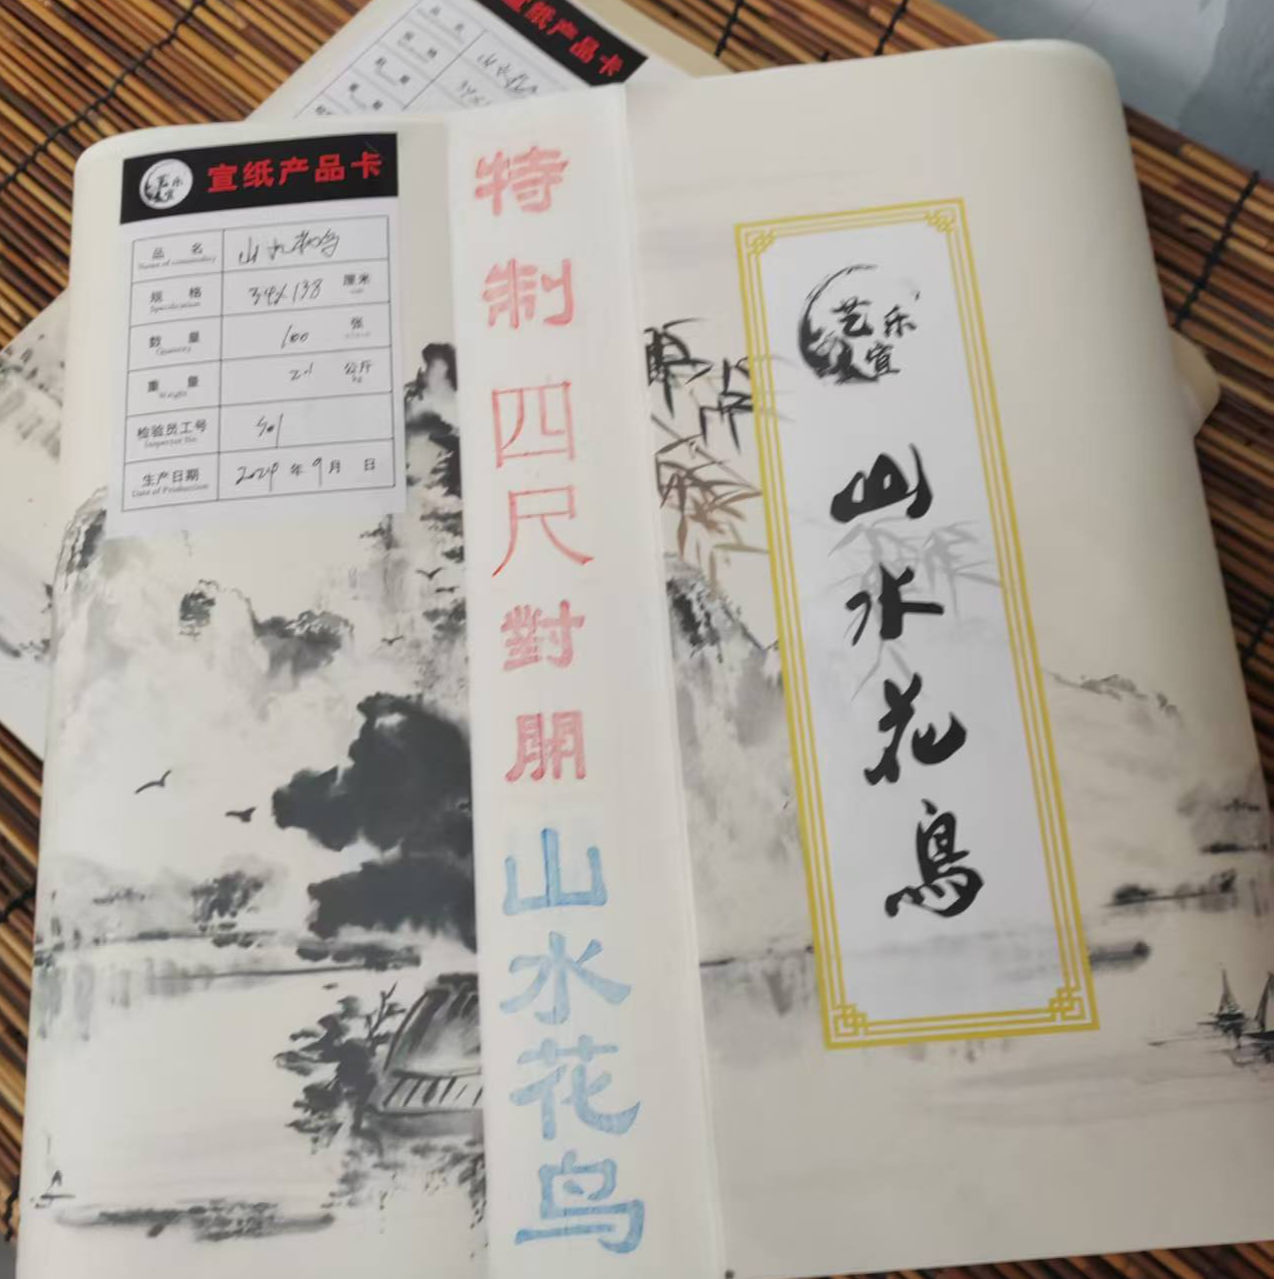 宣纸产品卡
艺乐宣
宣纸产品卡
品 名 山水花鸟
Name of commodity
规 格 34×138 厘米
Specification cm
数 量 100 张
Quantity
重 量 2.1 公斤
Weight kg
检验员工号 501
Inspector No.
生产日期 2024年9月 日
Date of Production
特制四尺對開山水花鸟
艺乐宣
山水花鸟